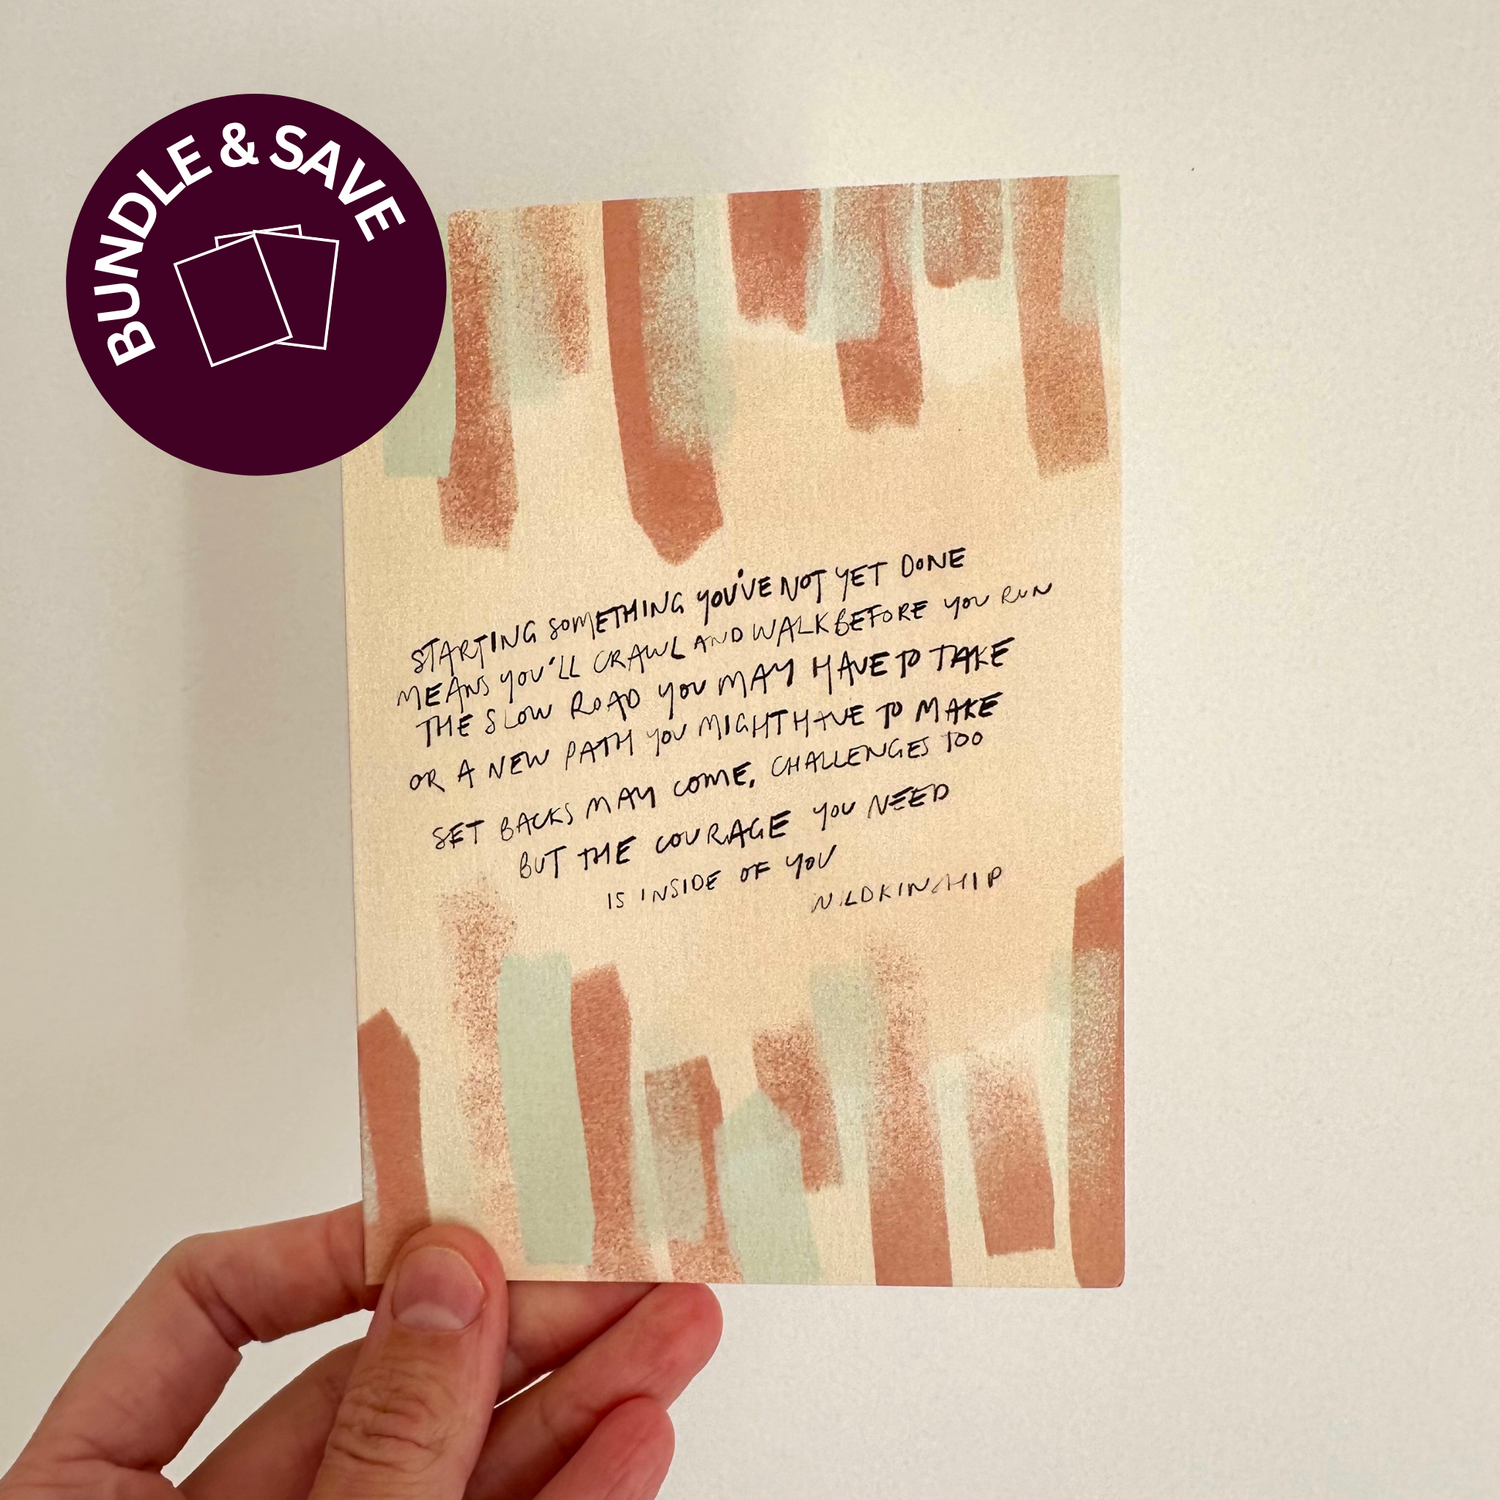 BUNDLE & SAVE
STARTING SOMETHING YOU'VE NOT YET DONE
MEANS YOU'LL CRAWL AND WALK BEFORE YOU RUN
THE SLOW ROAD YOU MAY HAVE TO TAKE
OR A NEW PATH YOU MIGHT HAVE TO MAKE
SET BACKS MAY COME, CHALLENGES TOO
BUT THE COURAGE YOU NEED
IS INSIDE OF YOU
WILDKINSHIP